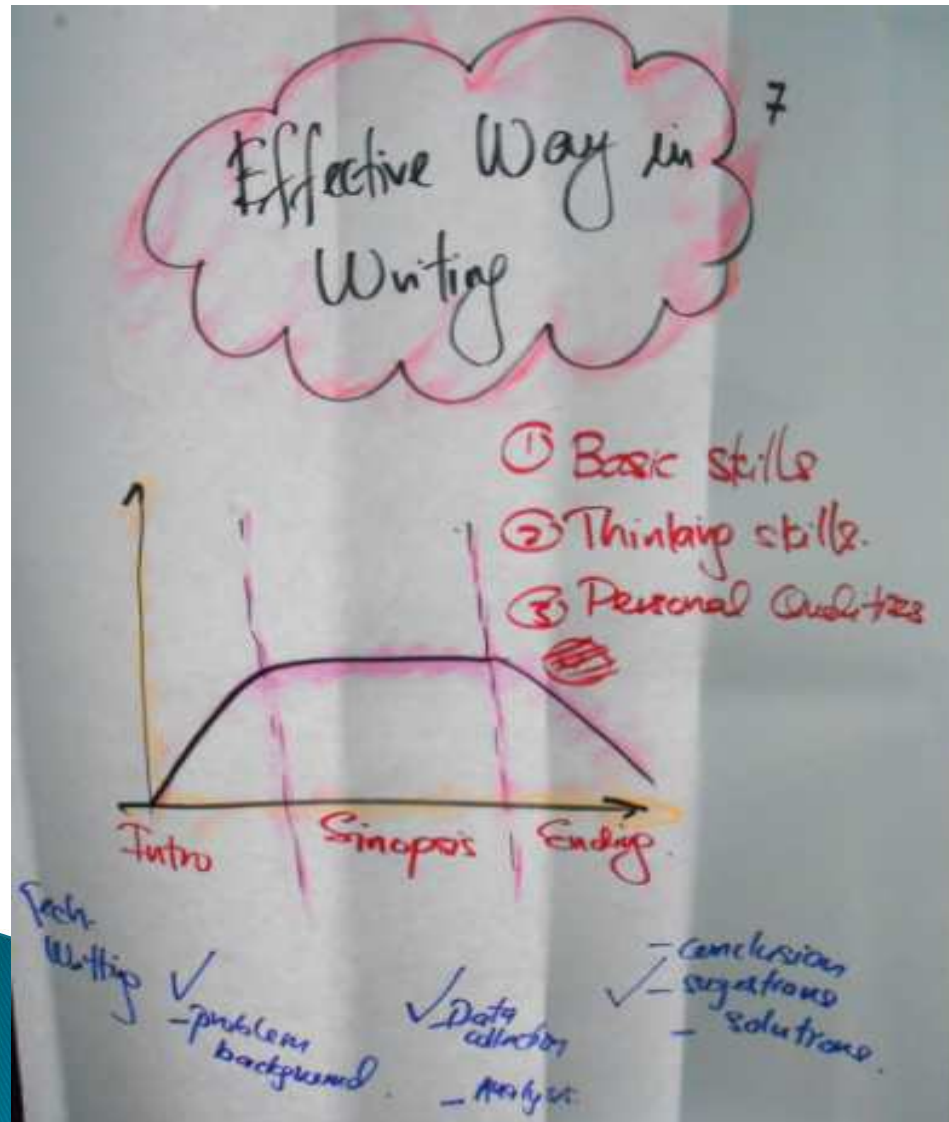 7
Effective Way in
Writing
① Basic skills
② Thinking skills.
③ Personal Qualities
Intro
Sinopsis
Ending.
Tech.
Writting
✓
- problem
background.
✓ - Data
collection
- Analysis.
- conclusion
✓ - sugestions
- solutions.